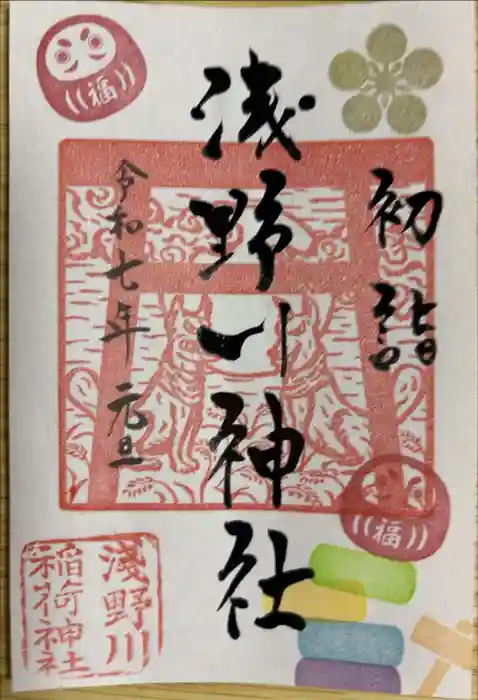 初詣
浅野川神社
令和七年 元旦
福
福
淺野川
稲荷神社